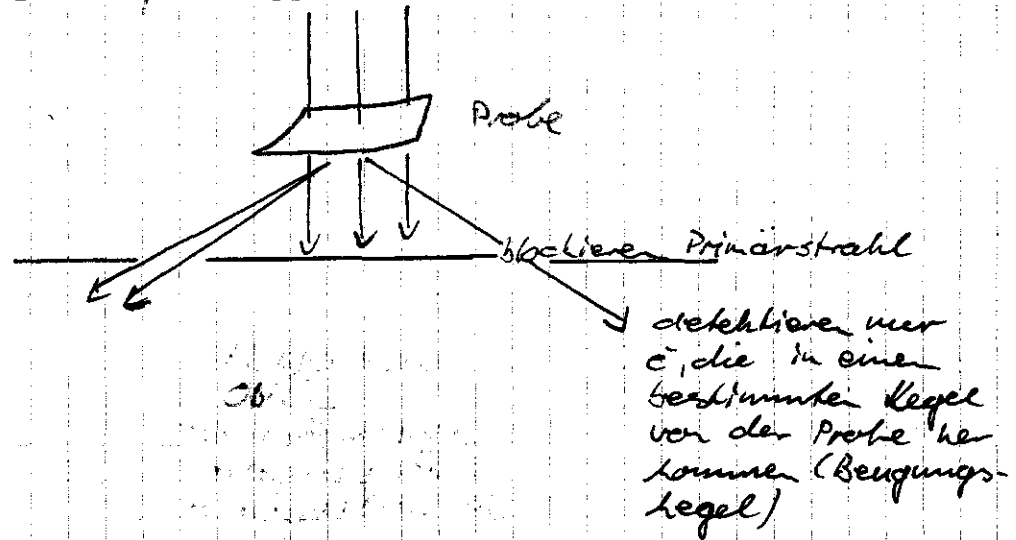 Probe
blockieren Primärstrahl
detektieren nur
e⁻, die in einen
bestimmten Kegel
von der Probe her
kommen (Beugungs-
kegel)